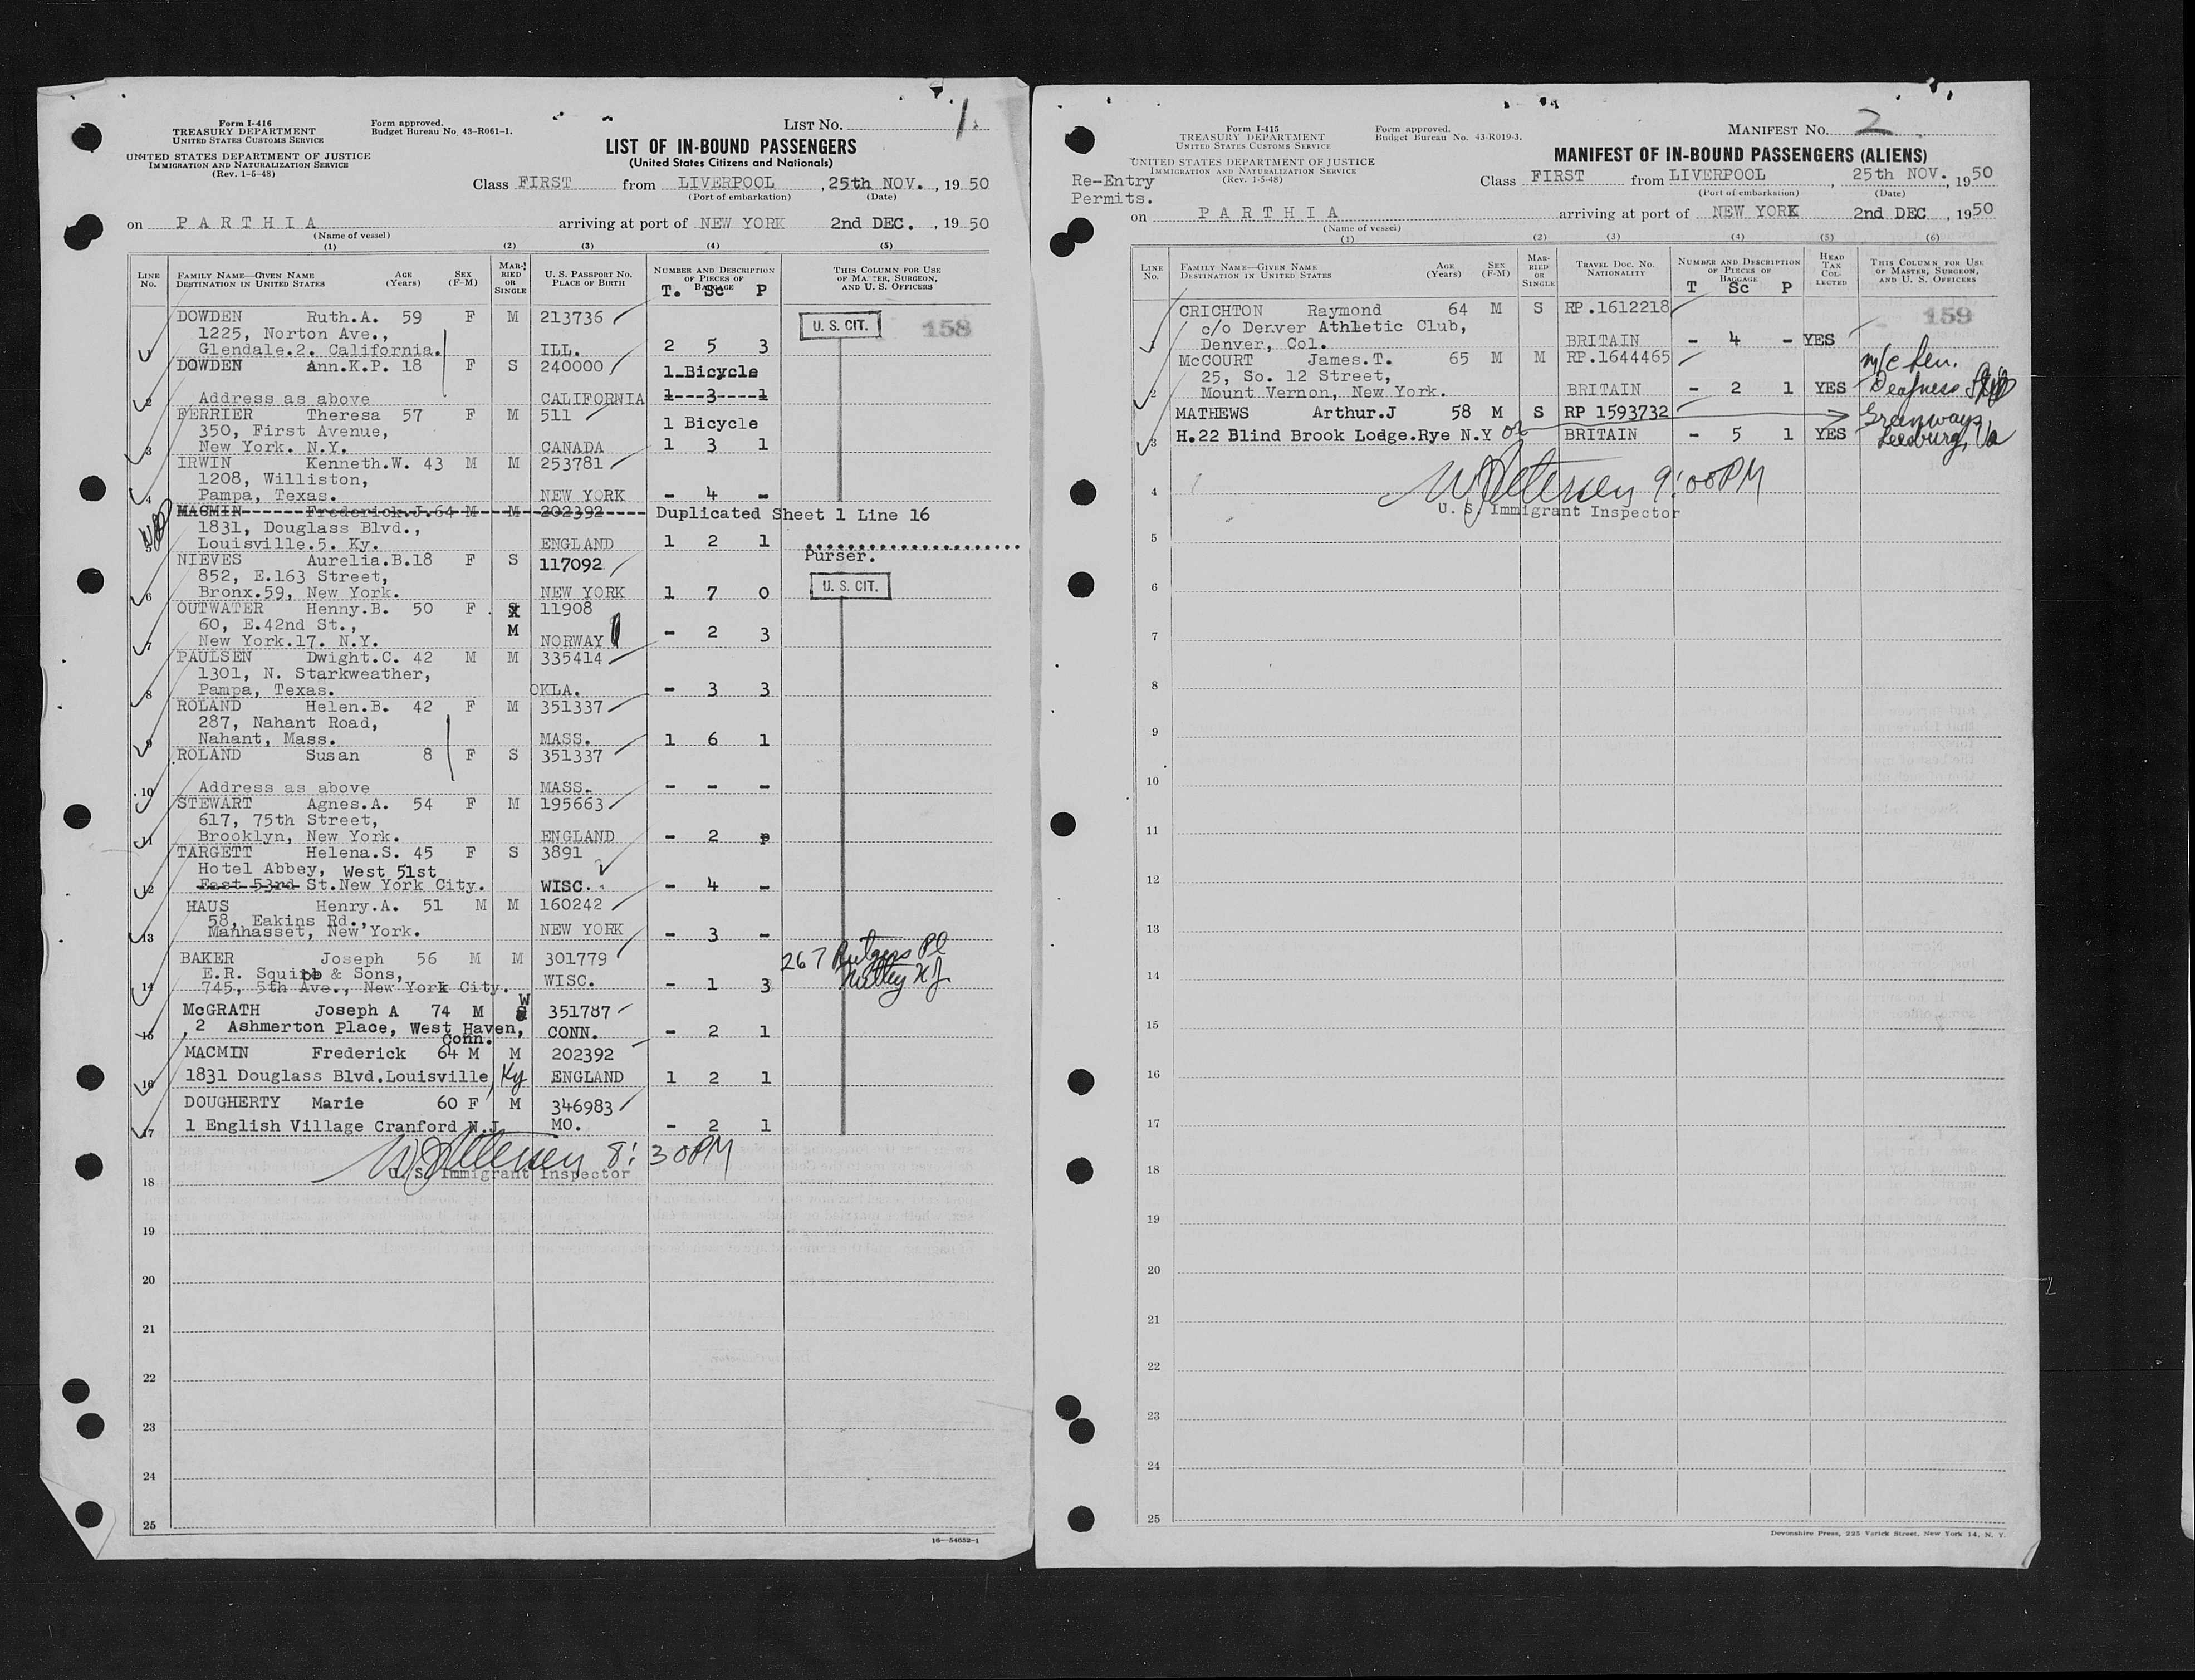 Form I-416
TREASURY DEPARTMENT
UNITED STATES CUSTOMS SERVICE
UNITED STATES DEPARTMENT OF JUSTICE
IMMIGRATION AND NATURALIZATION SERVICE
(Rev. 1-5-48)
Form approved.
Budget Bureau No. 43-R061-1.
LIST NO. 1
LIST OF IN-BOUND PASSENGERS
(United States Citizens and Nationals)
Class FIRST from LIVERPOOL, 25th NOV., 19 50
(Port of embarkation) (Date)
on PARTHIA arriving at port of NEW YORK 2nd DEC., 19 50
(Name of vessel)
(1) (2) (3) (4) (5)
LINE NO.
FAMILY NAME—GIVEN NAME
DESTINATION IN UNITED STATES
AGE (Years)
SEX (F-M)
MARRIED OR SINGLE
U. S. PASSPORT NO.
PLACE OF BIRTH
NUMBER AND DESCRIPTION OF PIECES OF BAGGAGE
T. Sc P
THIS COLUMN FOR USE OF MASTER, SURGEON, AND U. S. OFFICERS
DOWDEN Ruth.A. 59 F M 213736 U. S. CIT. 158
1225, Norton Ave.,
1 Glendale.2. California. ILL. 2 5 3
DOWDEN Ann.K.P. 18 F S 240000 1 Bicycle
2 Address as above CALIFORNIA 1---3----1
FERRIER Theresa 57 F M 511 1 Bicycle
350, First Avenue,
3 New York. N.Y. CANADA 1 3 1
IRWIN Kenneth.W. 43 M M 253781
1208, Williston,
4 Pampa, Texas. NEW YORK - 4 -
MACMIN Frederick.J.64 M M 202392 Duplicated Sheet 1 Line 16
1831, Douglass Blvd.,
5 Louisville.5. Ky. ENGLAND 1 2 1
Purser.
NIEVES Aurelia.B.18 F S 117092
852, E.163 Street,
6 Bronx.59, New York. NEW YORK 1 7 0 U. S. CIT.
OUTWATER Henny.B. 50 F S 11908
60, E.42nd St., M
7 New York.17. N.Y. NORWAY - 2 3
PAULSEN Dwight.C. 42 M M 335414
1301, N. Starkweather,
8 Pampa, Texas. OKLA. - 3 3
ROLAND Helen.B. 42 F M 351337
287, Nahant Road,
9 Nahant, Mass. MASS. 1 6 1
ROLAND Susan 8 F S 351337
10 Address as above MASS. - - -
STEWART Agnes.A. 54 F M 195663
617, 75th Street,
11 Brooklyn, New York. ENGLAND - 2 p
TARGETT Helena.S. 45 F S 3891
Hotel Abbey, West 51st
12 East 53rd St.New York City. WISC. - 4 -
HAUS Henry.A. 51 M M 160242
58, Eakins Rd.,
13 Manhasset, New York. NEW YORK - 3 -
BAKER Joseph 56 M M 301779 267 Rutgers Pl
E.R. Squibb & Sons, Nutley N J
14 745, 5th Ave., New York City. WISC. - 1 3
McGRATH Joseph A 74 M W 351787
15 2 Ashmerton Place, West Haven, CONN. - 2 1
Conn.
MACMIN Frederick 64 M M 202392
16 1831 Douglass Blvd.Louisville, Ky ENGLAND 1 2 1
DOUGHERTY Marie 60 F M 346983
17 1 English Village Cranford N.J MO. - 2 1
8:30PM
U. S. Immigrant Inspector
18
19
20
21
22
23
24
25
16—54652-1
Form I-415
TREASURY DEPARTMENT
UNITED STATES CUSTOMS SERVICE
UNITED STATES DEPARTMENT OF JUSTICE
IMMIGRATION AND NATURALIZATION SERVICE
(Rev. 1-5-48)
Form approved.
Budget Bureau No. 43-R019-3.
MANIFEST NO. 2
MANIFEST OF IN-BOUND PASSENGERS (ALIENS)
Re-Entry
Permits.
Class FIRST from LIVERPOOL, 25th NOV., 19 50
(Port of embarkation) (Date)
on PARTHIA arriving at port of NEW YORK 2nd DEC, 19 50
(Name of vessel)
(1) (2) (3) (4) (5) (6)
LINE NO.
FAMILY NAME—GIVEN NAME
DESTINATION IN UNITED STATES
AGE (Years)
SEX (F-M)
MARRIED OR SINGLE
TRAVEL DOC. NO.
NATIONALITY
NUMBER AND DESCRIPTION OF PIECES OF BAGGAGE
T Sc P
HEAD TAX COLLECTED
THIS COLUMN FOR USE OF MASTER, SURGEON, AND U. S. OFFICERS
CRICHTON Raymond 64 M S RP.1612218 159
c/o Denver Athletic Club,
1 Denver, Col. BRITAIN - 4 - YES
McCOURT James.T. 65 M M RP.1644465
25, So. 12 Street,
2 Mount Vernon, New York. BRITAIN - 2 1 YES Deafness
MATHEWS Arthur.J 58 M S RP 1593732 Greenways
3 H.22 Blind Brook Lodge.Rye N.Y or BRITAIN - 5 1 YES Leesburg, Va
9:00PM
U. S. Immigrant Inspector
4
5
6
7
8
9
10
11
12
13
14
15
16
17
18
19
20
21
22
23
24
25
Devonshire Press, 225 Varick Street, New York 14, N. Y.